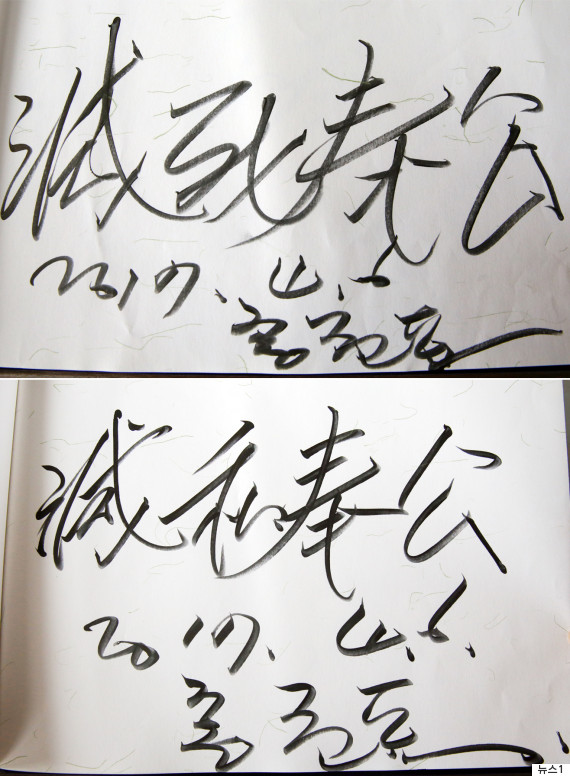 滅死奉公
2017. 4.
홍준표
滅私奉公
2017. 4.
홍준표
뉴스1